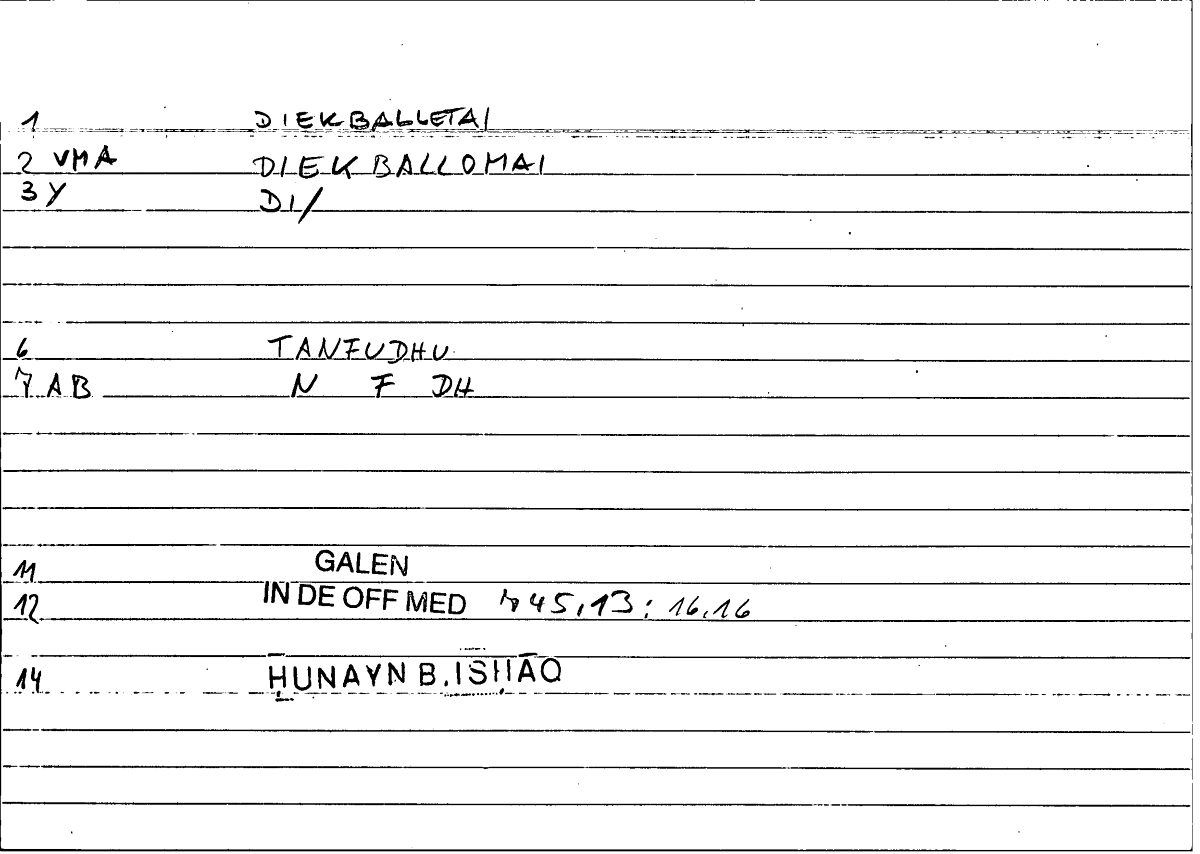 1 DIEKBALLETAI
2 VMA DIEKBALLOMAI
3 Y DI/
6 TANFUDHU
7 AB N F DH
11 GALEN
12 IN DE OFF MED 45,13 : 16,16
14 ḤUNAYN B. ISḤĀQ